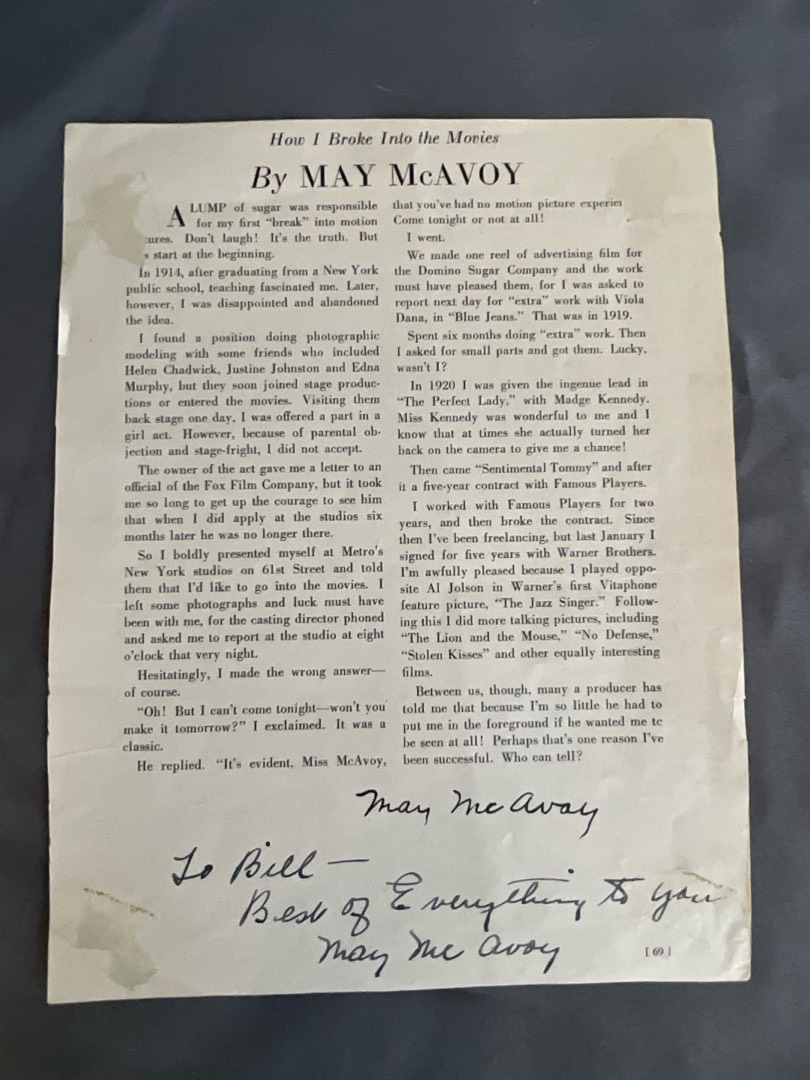 How I Broke Into the Movies
By MAY McAVOY
A LUMP of sugar was responsible
for my first “break” into motion
tures. Don't laugh! It's the truth. But
s start at the beginning.
In 1914, after graduating from a New York
public school, teaching fascinated me. Later,
however, I was disappointed and abandoned
the idea.
I found a position doing photographic
modeling with some friends who included
Helen Chadwick, Justine Johnston and Edna
Murphy, but they soon joined stage produc-
tions or entered the movies. Visiting them
back stage one day, I was offered a part in a
girl act. However, because of parental ob-
jection and stage-fright, I did not accept.
The owner of the act gave me a letter to an
official of the Fox Film Company, but it took
me so long to get up the courage to see him
that when I did apply at the studios six
months later he was no longer there.
So I boldly presented myself at Metro's
New York studios on 61st Street and told
them that I'd like to go into the movies. I
left some photographs and luck must have
been with me, for the casting director phoned
and asked me to report at the studio at eight
o'clock that very night.
Hesitatingly, I made the wrong answer—
of course.
“Oh! But I can't come tonight—won't you
make it tomorrow?” I exclaimed. It was a
classic.
He replied. “It's evident, Miss McAvoy,
that you've had no motion picture experien
Come tonight or not at all!
I went.
We made one reel of advertising film for
the Domino Sugar Company and the work
must have pleased them, for I was asked to
report next day for “extra” work with Viola
Dana, in “Blue Jeans.” That was in 1919.
Spent six months doing “extra” work. Then
I asked for small parts and got them. Lucky,
wasn't I?
In 1920 I was given the ingenue lead in
“The Perfect Lady,” with Madge Kennedy.
Miss Kennedy was wonderful to me and I
know that at times she actually turned her
back on the camera to give me a chance!
Then came “Sentimental Tommy” and after
it a five-year contract with Famous Players.
I worked with Famous Players for two
years, and then broke the contract. Since
then I've been freelancing, but last January I
signed for five years with Warner Brothers.
I'm awfully pleased because I played oppo-
site Al Jolson in Warner's first Vitaphone
feature picture, “The Jazz Singer.” Follow-
ing this I did more talking pictures, including
“The Lion and the Mouse,” “No Defense,”
“Stolen Kisses” and other equally interesting
films.
Between us, though, many a producer has
told me that because I'm so little he had to
put me in the foreground if he wanted me to
be seen at all! Perhaps that's one reason I've
been successful. Who can tell?
May McAvoy
To Bill —
Best of Everything to you
May McAvoy
[ 69 ]